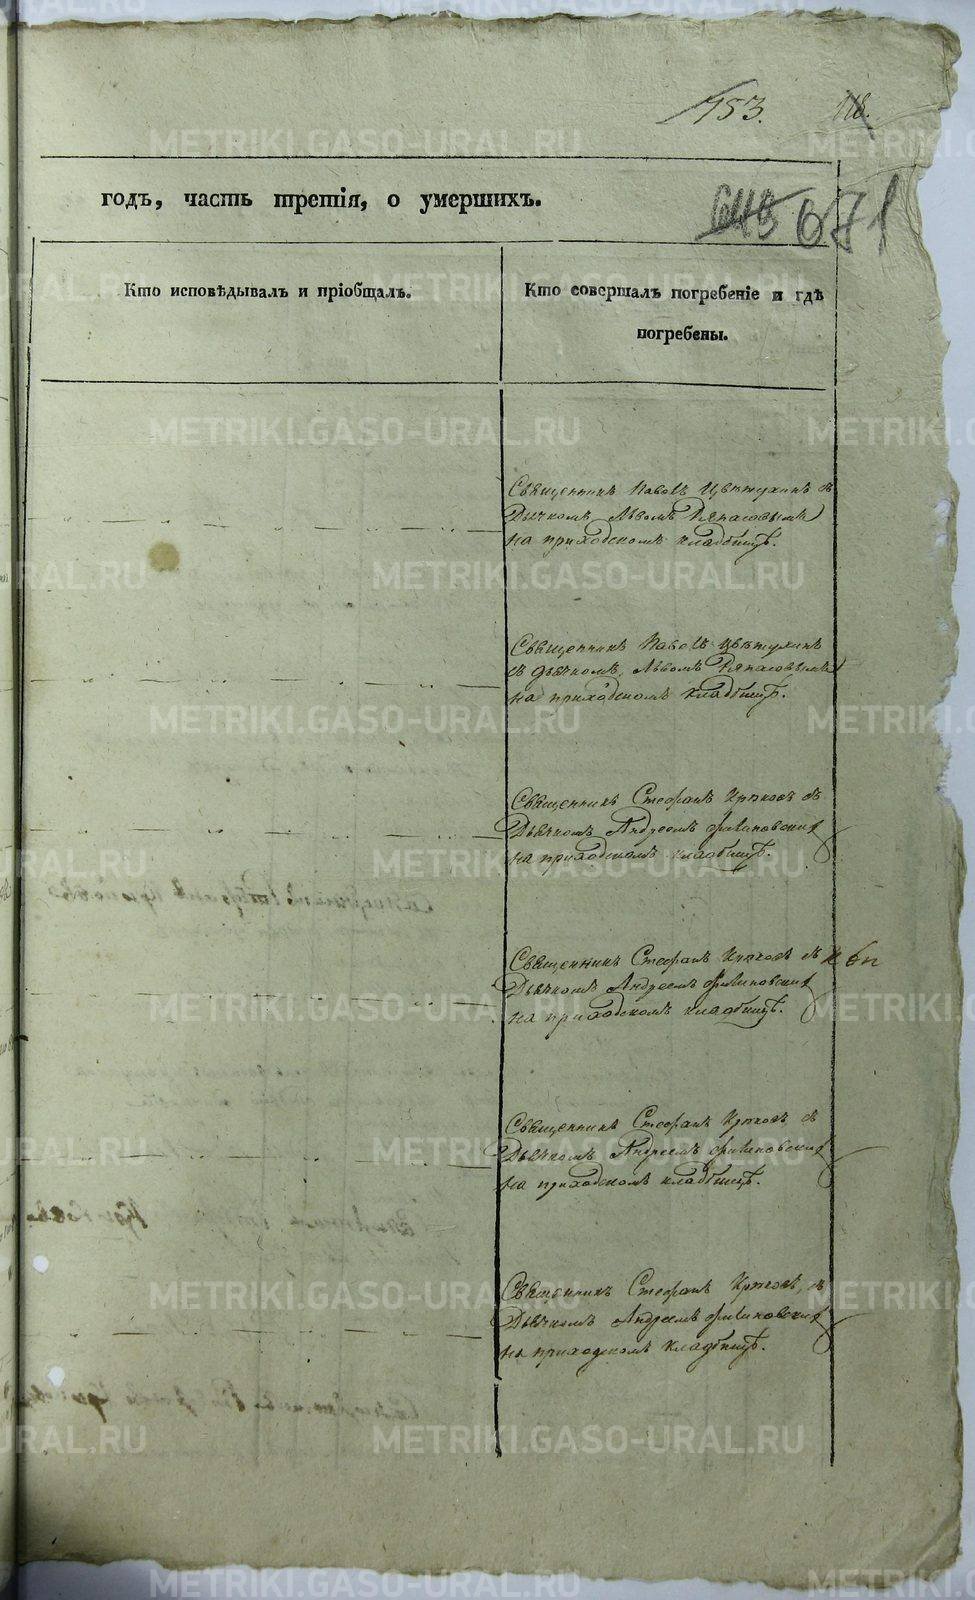 153.
118.
годъ, часть третія, о умершихъ.
643 671
Кто исповѣдывалъ и пріобщалъ.
Кто совершалъ погребеніе и гдѣ
погребены.
Священникъ Павелъ Цвѣтухинъ съ
Дьячкомъ Львомъ
на приходскомъ кладбищѣ.
Священникъ Павелъ Цвѣтухинъ
съ дьячкомъ Львомъ
на приходскомъ кладбищѣ.
Священникъ Стефанъ съ
Дьячкомъ Андреемъ Филиновскимъ
на приходскомъ кладбищѣ.
Священникъ Стефанъ съ
Дьячкомъ Андреемъ Филиновскимъ
на приходскомъ кладбищѣ.
Священникъ Стефанъ съ
Дьячкомъ Андреемъ Филиновскимъ
на приходскомъ кладбищѣ.
Священникъ Стефанъ съ
Дьячкомъ Андреемъ Филиновскимъ
на приходскомъ кладбищѣ.
METRIKI.GASO-URAL.RU